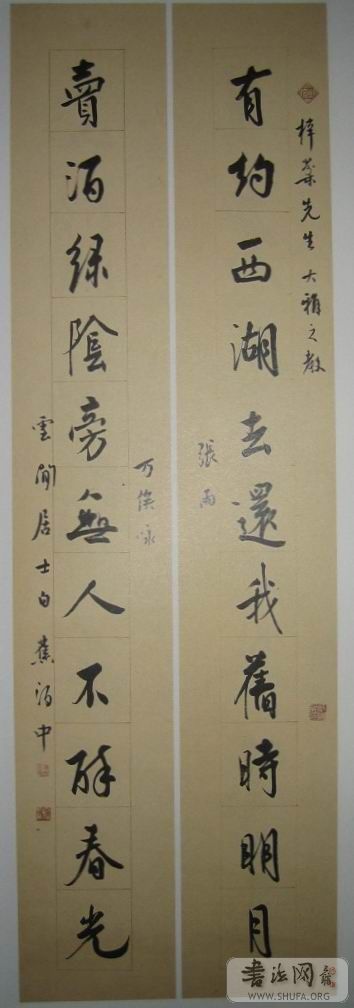 梓棻先生大雅之教
有約西湖去還我舊時明月
張雨
万俟詠
賣酒綠陰旁無人不醉春光
雲間居士白蕉酒中
書法网
WWW.SHUFA.ORG